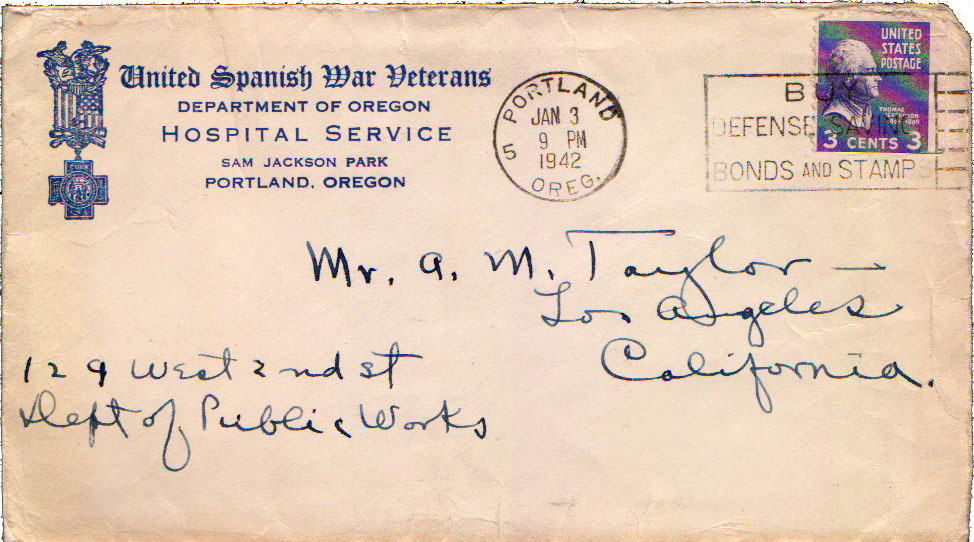 United Spanish War Veterans
DEPARTMENT OF OREGON
HOSPITAL SERVICE
SAM JACKSON PARK
PORTLAND, OREGON
PORTLAND
JAN 3
9 PM
1942
5
OREG.
BUY
DEFENSE SAVINGS
BONDS AND STAMPS
UNITED
STATES
POSTAGE
THOMAS
JEFFERSON
3 CENTS 3
Mr. A. M. Taylor —
Los Angeles
California.
129 West 2nd St
Dept of Public Works